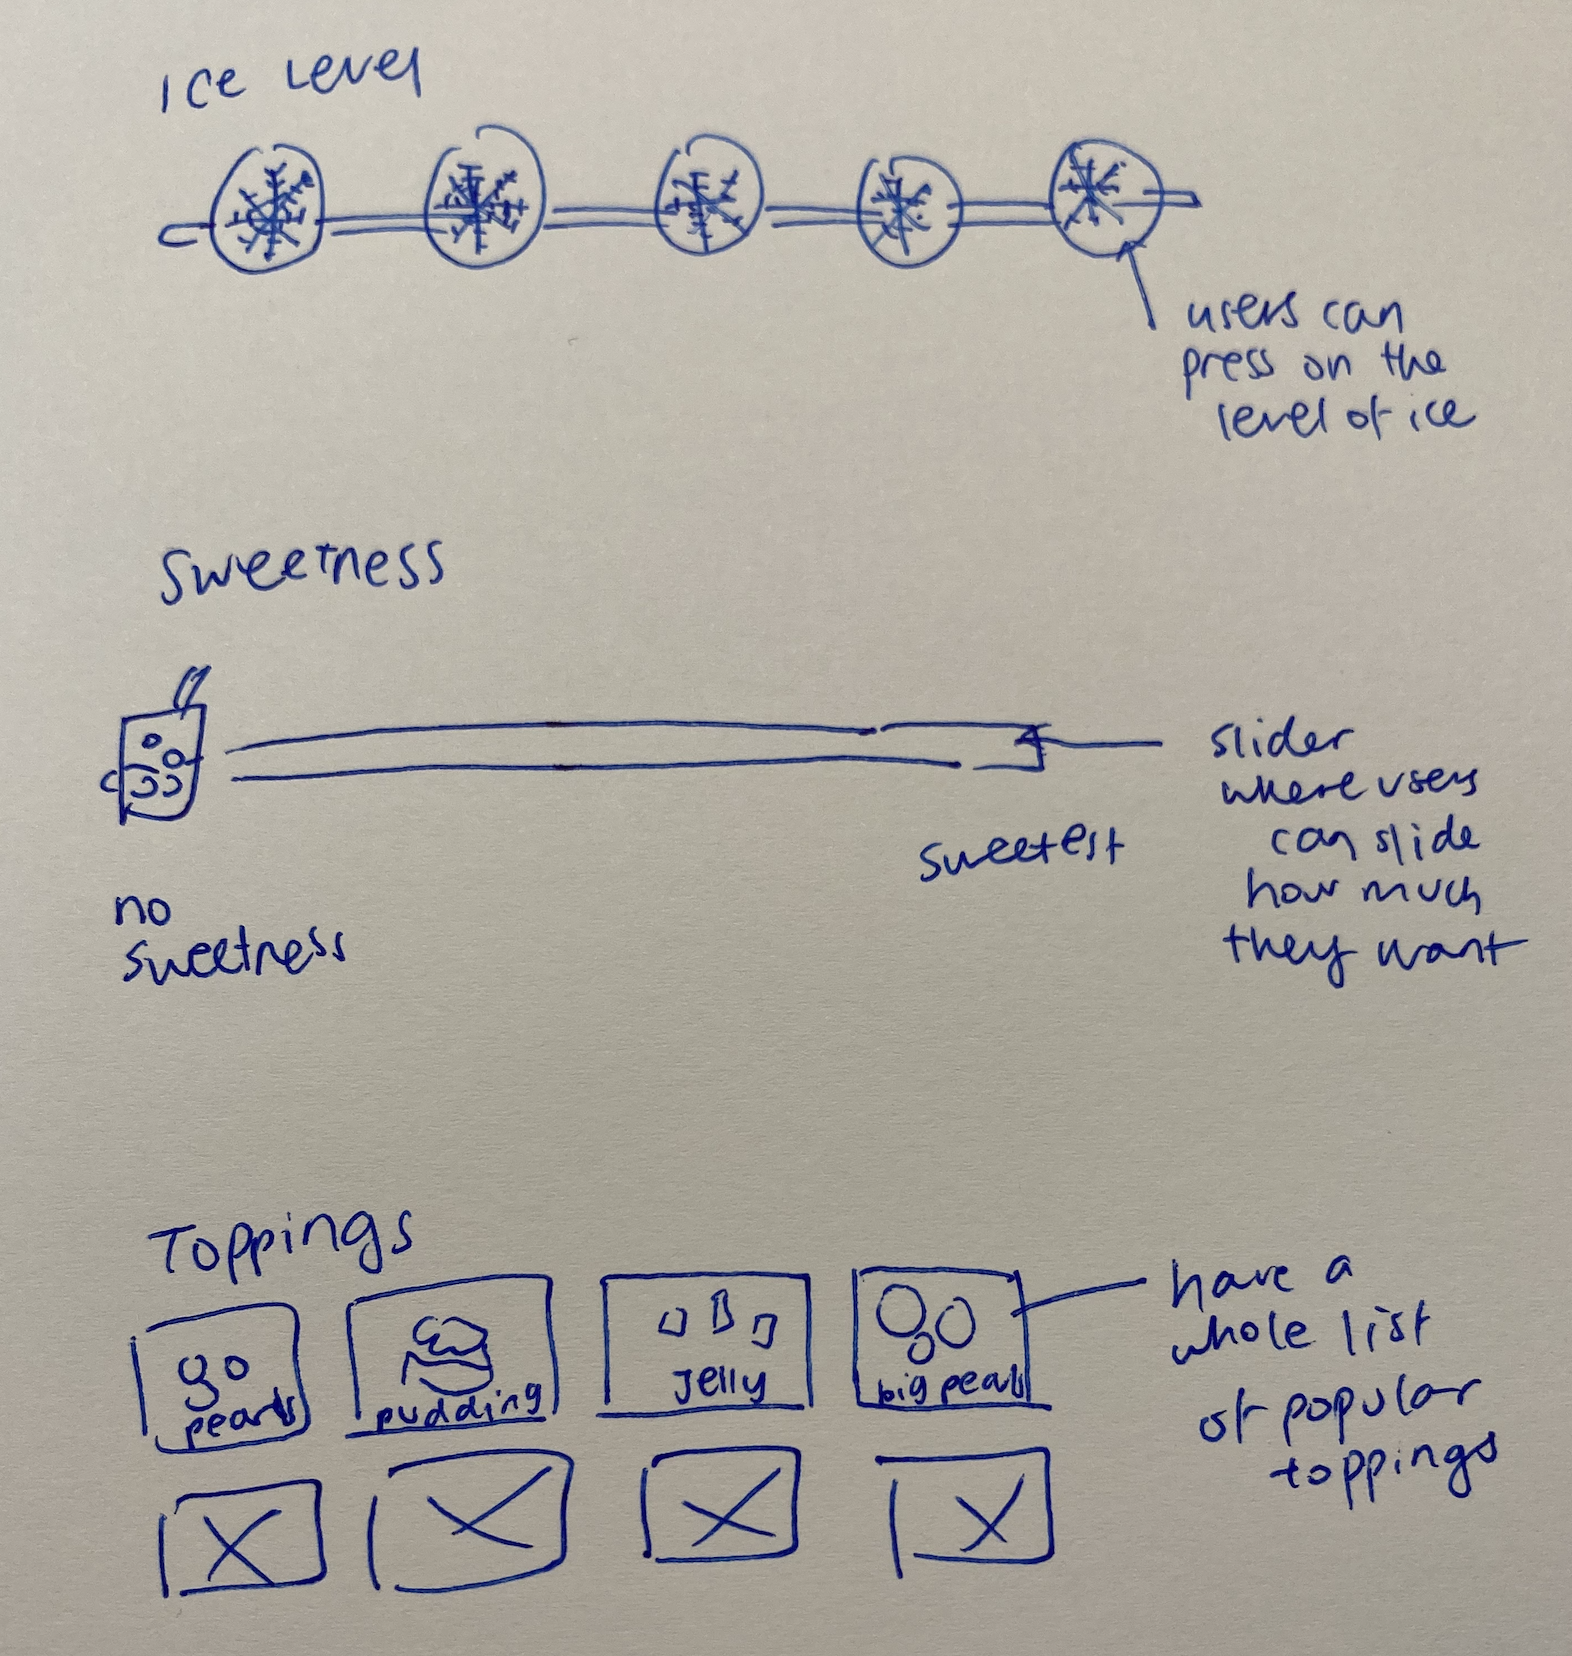 Ice Level
users can
press on the
level of ice
Sweetness
slider
where users
can slide
how much
they want
sweetest
no
sweetness
Toppings
pearls
pudding
Jelly
big pearls
have a
whole list
of popular
toppings